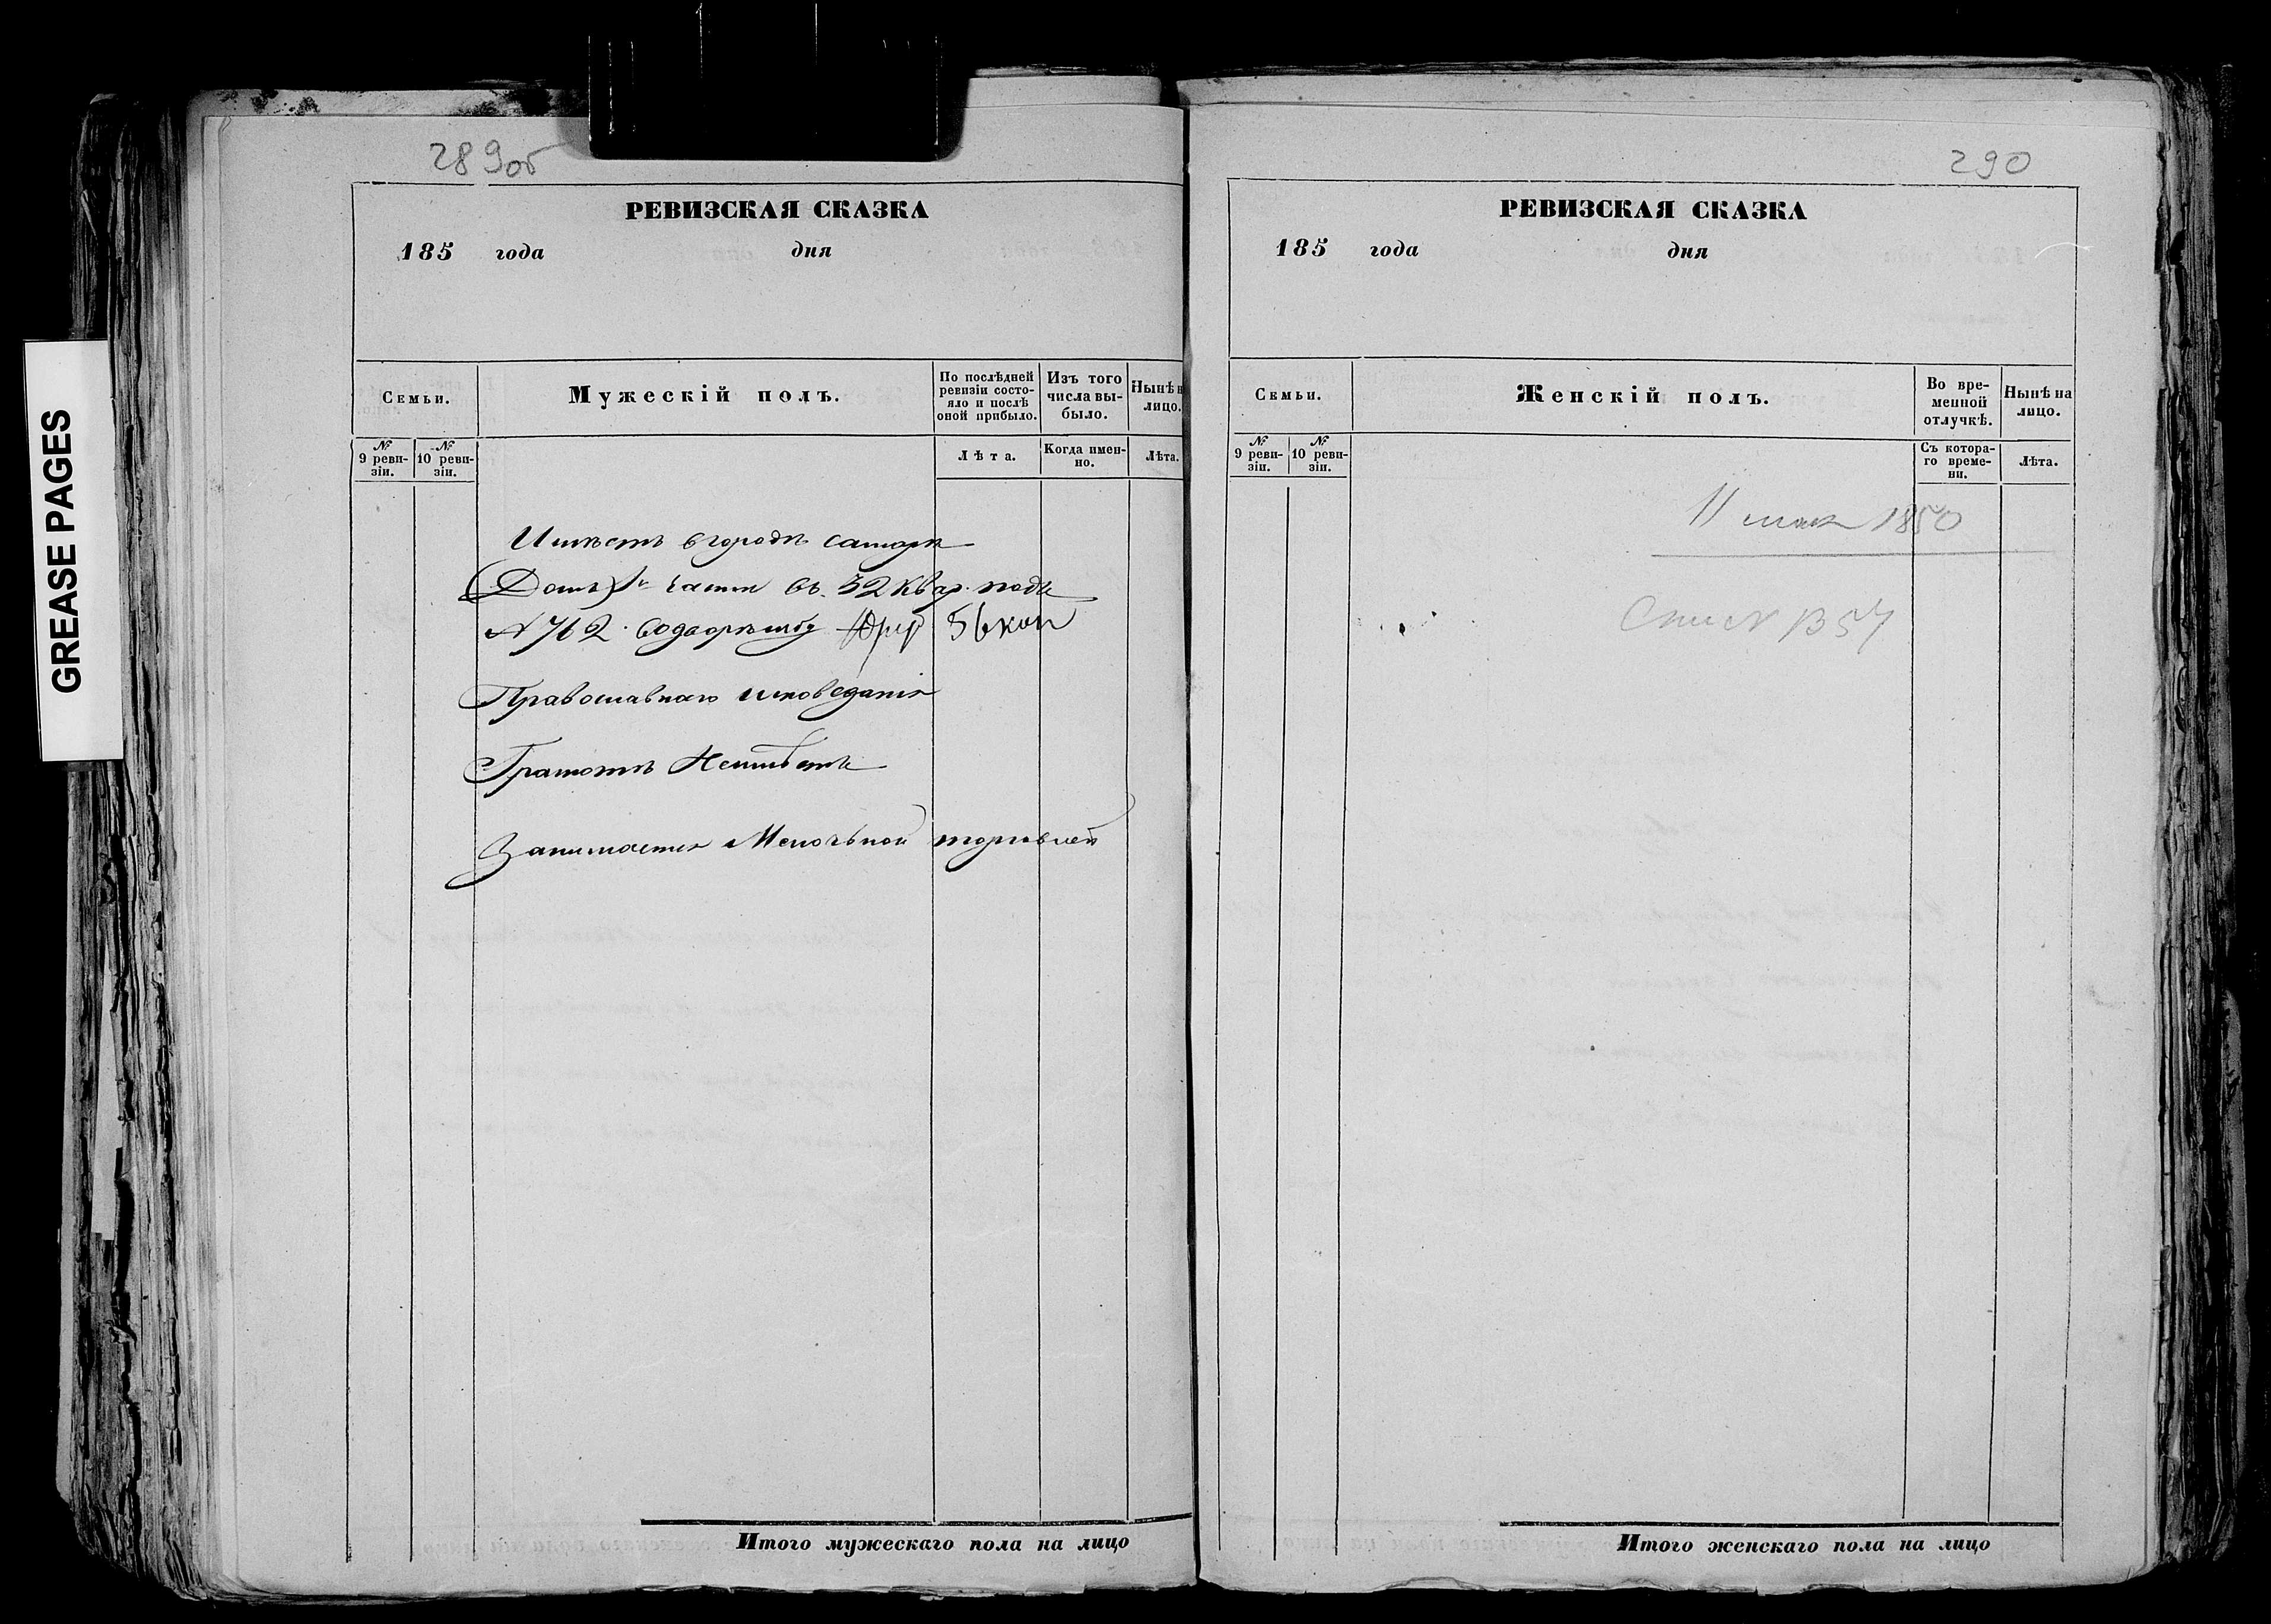 289об
РЕВИЗСКАЯ СКАЗКА
185 года дня
Семьи.
Мужескій полъ.
По послѣдней ревизіи состо-
яло и послѣ оной прибыло.
Изъ того числа вы-
было.
Нынѣ н
лицо.
№ 9 реви-
зіи.
№ 10 реви-
зіи.
Лѣта.
Когда имен-
но.
Лѣта.
Имѣетъ в городѣ самарѣ
Домъ 1й части въ 32 квар. подъ
№ 762
56 коп
Православнаго исповеданія
Грамотѣ Неимѣетъ
Занимается Мелочьной торговлей
Итого мужескаго пола на лицо
290
РЕВИЗСКАЯ СКАЗКА
185 года дня
Семьи.
Женскій полъ.
Во вре-
менной
отлучкѣ.
Нынѣ на
лицо.
№ 9 реви-
зіи.
№ 10 реви-
зіи.
Съ котора-
го време-
ни.
Лѣта.
11 мая 1850
Итого женскаго пола на лицо
GREASE PAGES